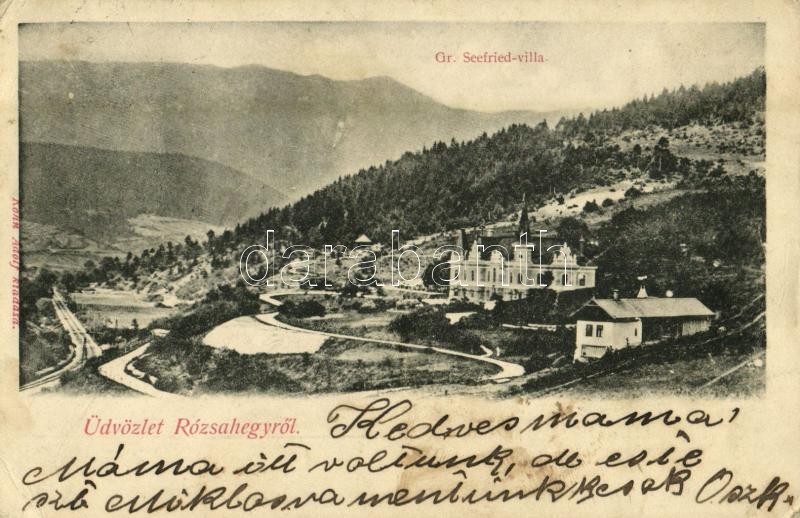 Gr. Seefried-villa.
Kohn Adolf kiadása.
darabanth
Üdvözlet Rózsahegyről.
Kedves mama!
Máma itt voltunk, de esté
szt Miklosra mentünk